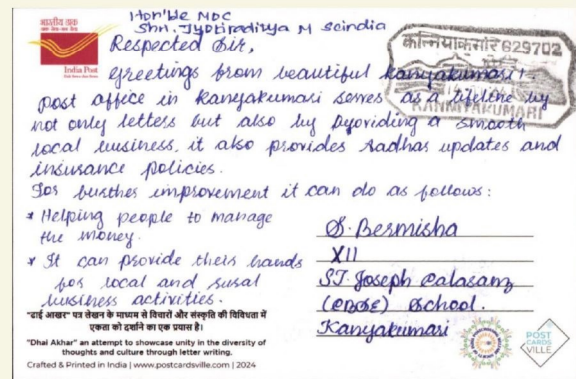 भारतीय डाक
India Post
Hon'ble MOC
Shri. Jyotiraditya M Scindia
Respected Sir,
Greetings from beautiful Kanyakumari!
post office in Kanyakumari serves as a lifeline by
not only letters but also by providing a smooth
local business, it also provides Aadhar updates and
insurance policies.
For further improvement it can do as follows:
* Helping people to manage
the money.
* It can provide their hands
for local and rural
business activities.
कन्नियाकुमारि 629702
KANNIYAKUMARI
S. Bermisha
XII
ST. Joseph Calasanz
(CBSE) School.
Kanyakumari
"ढाई आखर" पत्र लेखन के माध्यम से विचारों और संस्कृति की विविधता में
एकता को दर्शाने का एक प्रयास है।
"Dhai Akhar" an attempt to showcase unity in the diversity of
thoughts and culture through letter writing.
Crafted & Printed in India | www.postcardsville.com | 2024
POST
CARDS
VILLE